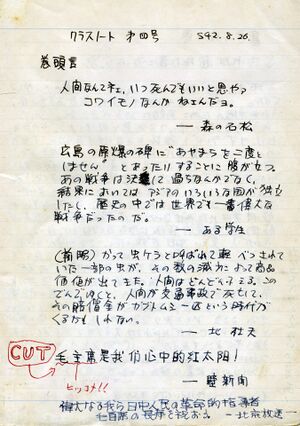 クラスノート 第四号 S42.8.26.
巻頭言
人間なんてネェ、いつ死んでもいいと思やァ
コワイモノなんか ねェんだョ。
── 森の石松
広島の原爆の碑に"あやまちを二度と
はせん" とあったりすることに腹が立つ。
あの戦争は決して過ちなんかでなく、
結果においては アジアのいろいろな国が独立
したし、歴史の中では世界でも一番偉大な
戦争だったのだ。
── ある学生
(前略) かつて虫ケラと呼ばれて軽べつされて
いた一部の虫が、その数の減少によって商品
価値が出てきた。人間はどんどんふえる。この
でんでいくと、人間が交通事故で死んでも、
その賠償金がカブトムシ一匹という時代が
くるかもしれない。
── 北 杜夫
CUT 毛主席是我们心中的红太阳!
ヒッコメ!!
── 壁新聞
偉大なる我ら日中人民の革命的指導者
毛主席の長寿を祝おう。 ─北京放送─